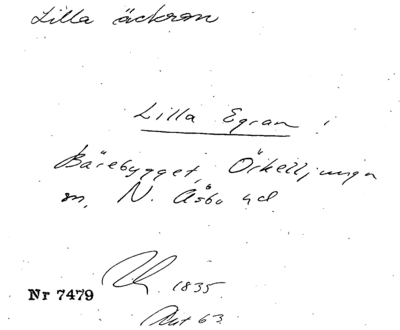 Lilla äckran
Lilla Egran i
Bärebygget, Örkelljunga
sn, N. Åsbo hd
1835
Nr 7479
Akt 63